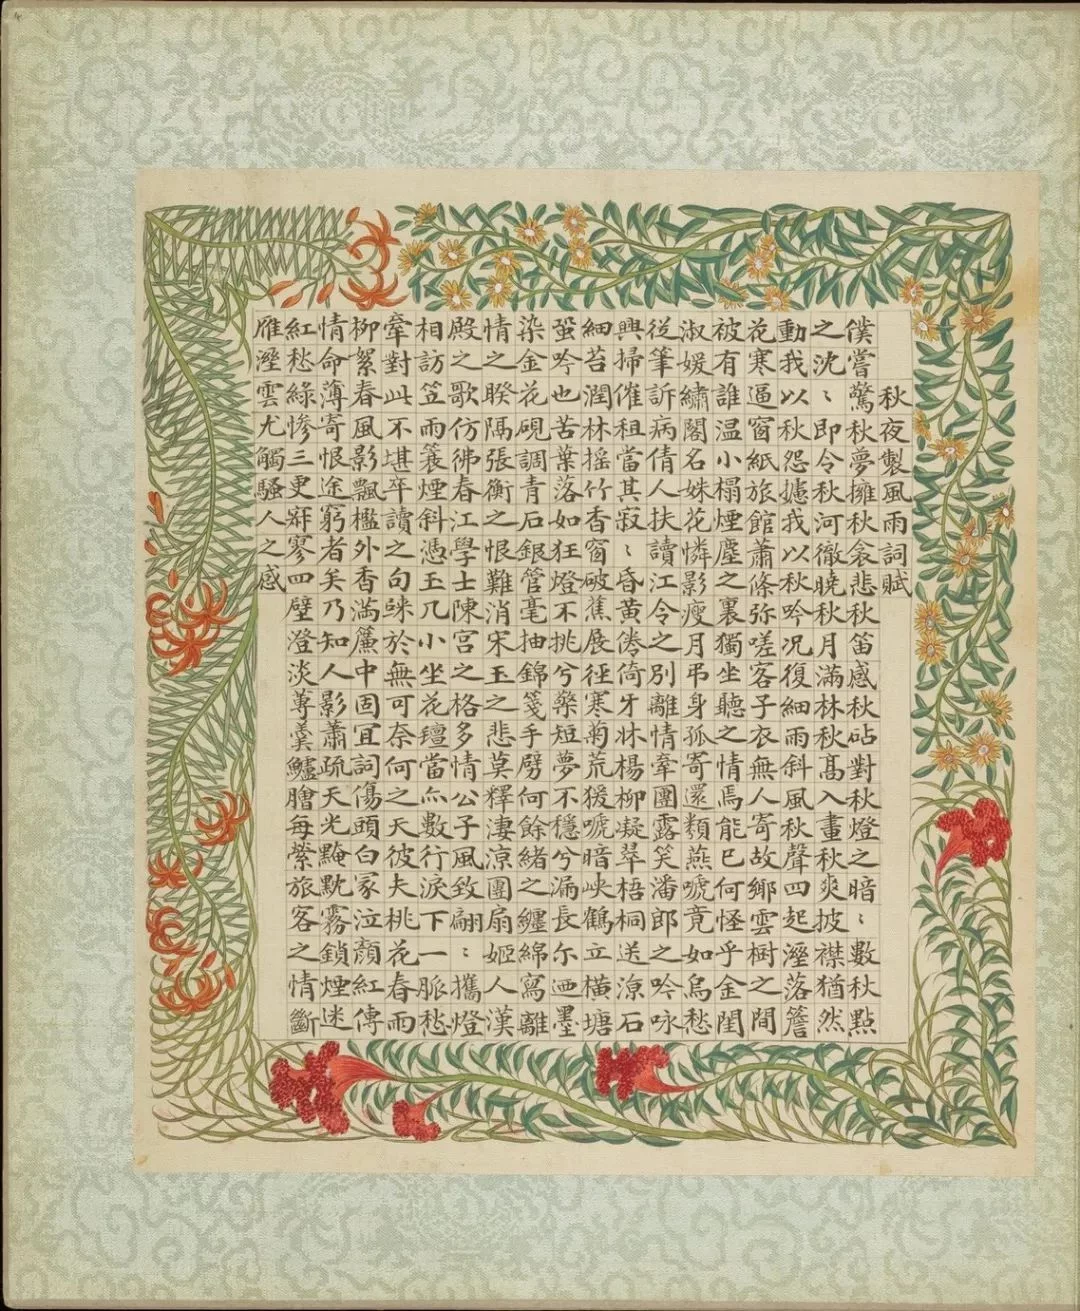 秋夜製風雨詞賦
僕嘗驚秋夢擁秋衾悲秋笛感秋砧對秋燈之暗〻數秋點
之沈〻即令秋河徹曉秋月滿林秋髙入畫秋爽披襟猶然
動我以秋怨攄我以秋吟况復細雨斜風秋聲四起溼落簷
花寒逼窗紙旅館蕭條弥嗟客子衣無人寄故鄉雲樹之間
被有誰温小榻煙塵之裏獨坐聽之情焉能已何怪乎金閨
淑媛繡閣名姝花憐影瘦月弔身孤寄還類燕唬竟如烏愁
從筆訴病倩人扶讀江令之別離情牽團露笑潘郎之吟咏
興掃催租當其寂〻昏黄倦倚牙牀楊柳凝翠梧桐送涼石
細苔潤林摇竹香窗破蕉展徑寒菊荒猨唬暗峽鶴立橫塘
蛩吟也苦葉落如狂燈不挑兮檠短夢不穩兮漏長尓迺墨
染金花硯調青石銀管毫抽錦箋手劈何餘緒之纏綿寫離
情之暌隔張衡之恨難消宋玉之悲莫釋淒涼團扇姬人漢
殿之歌仿彿春江學士陳宮之格多情公子風致翩〻攜燈
相訪笠雨簑煙斜憑玉几小坐花氊當亦數行淚下一脈愁
牽對此不堪卒讀之句疎於無可奈何之天彼夫桃花春雨
柳絮春風影飄檻外香滿簾中固宜詞傷頭白冢泣顏紅傳
情命薄寄恨途窮者矣乃知人影蕭疏天光黯黕霧鎖煙迷
紅愁綠慘三更寂寥四壁澄淡蓴羹鱸膾每縈旅客之情斷
雁溼雲尤觸騷人之感